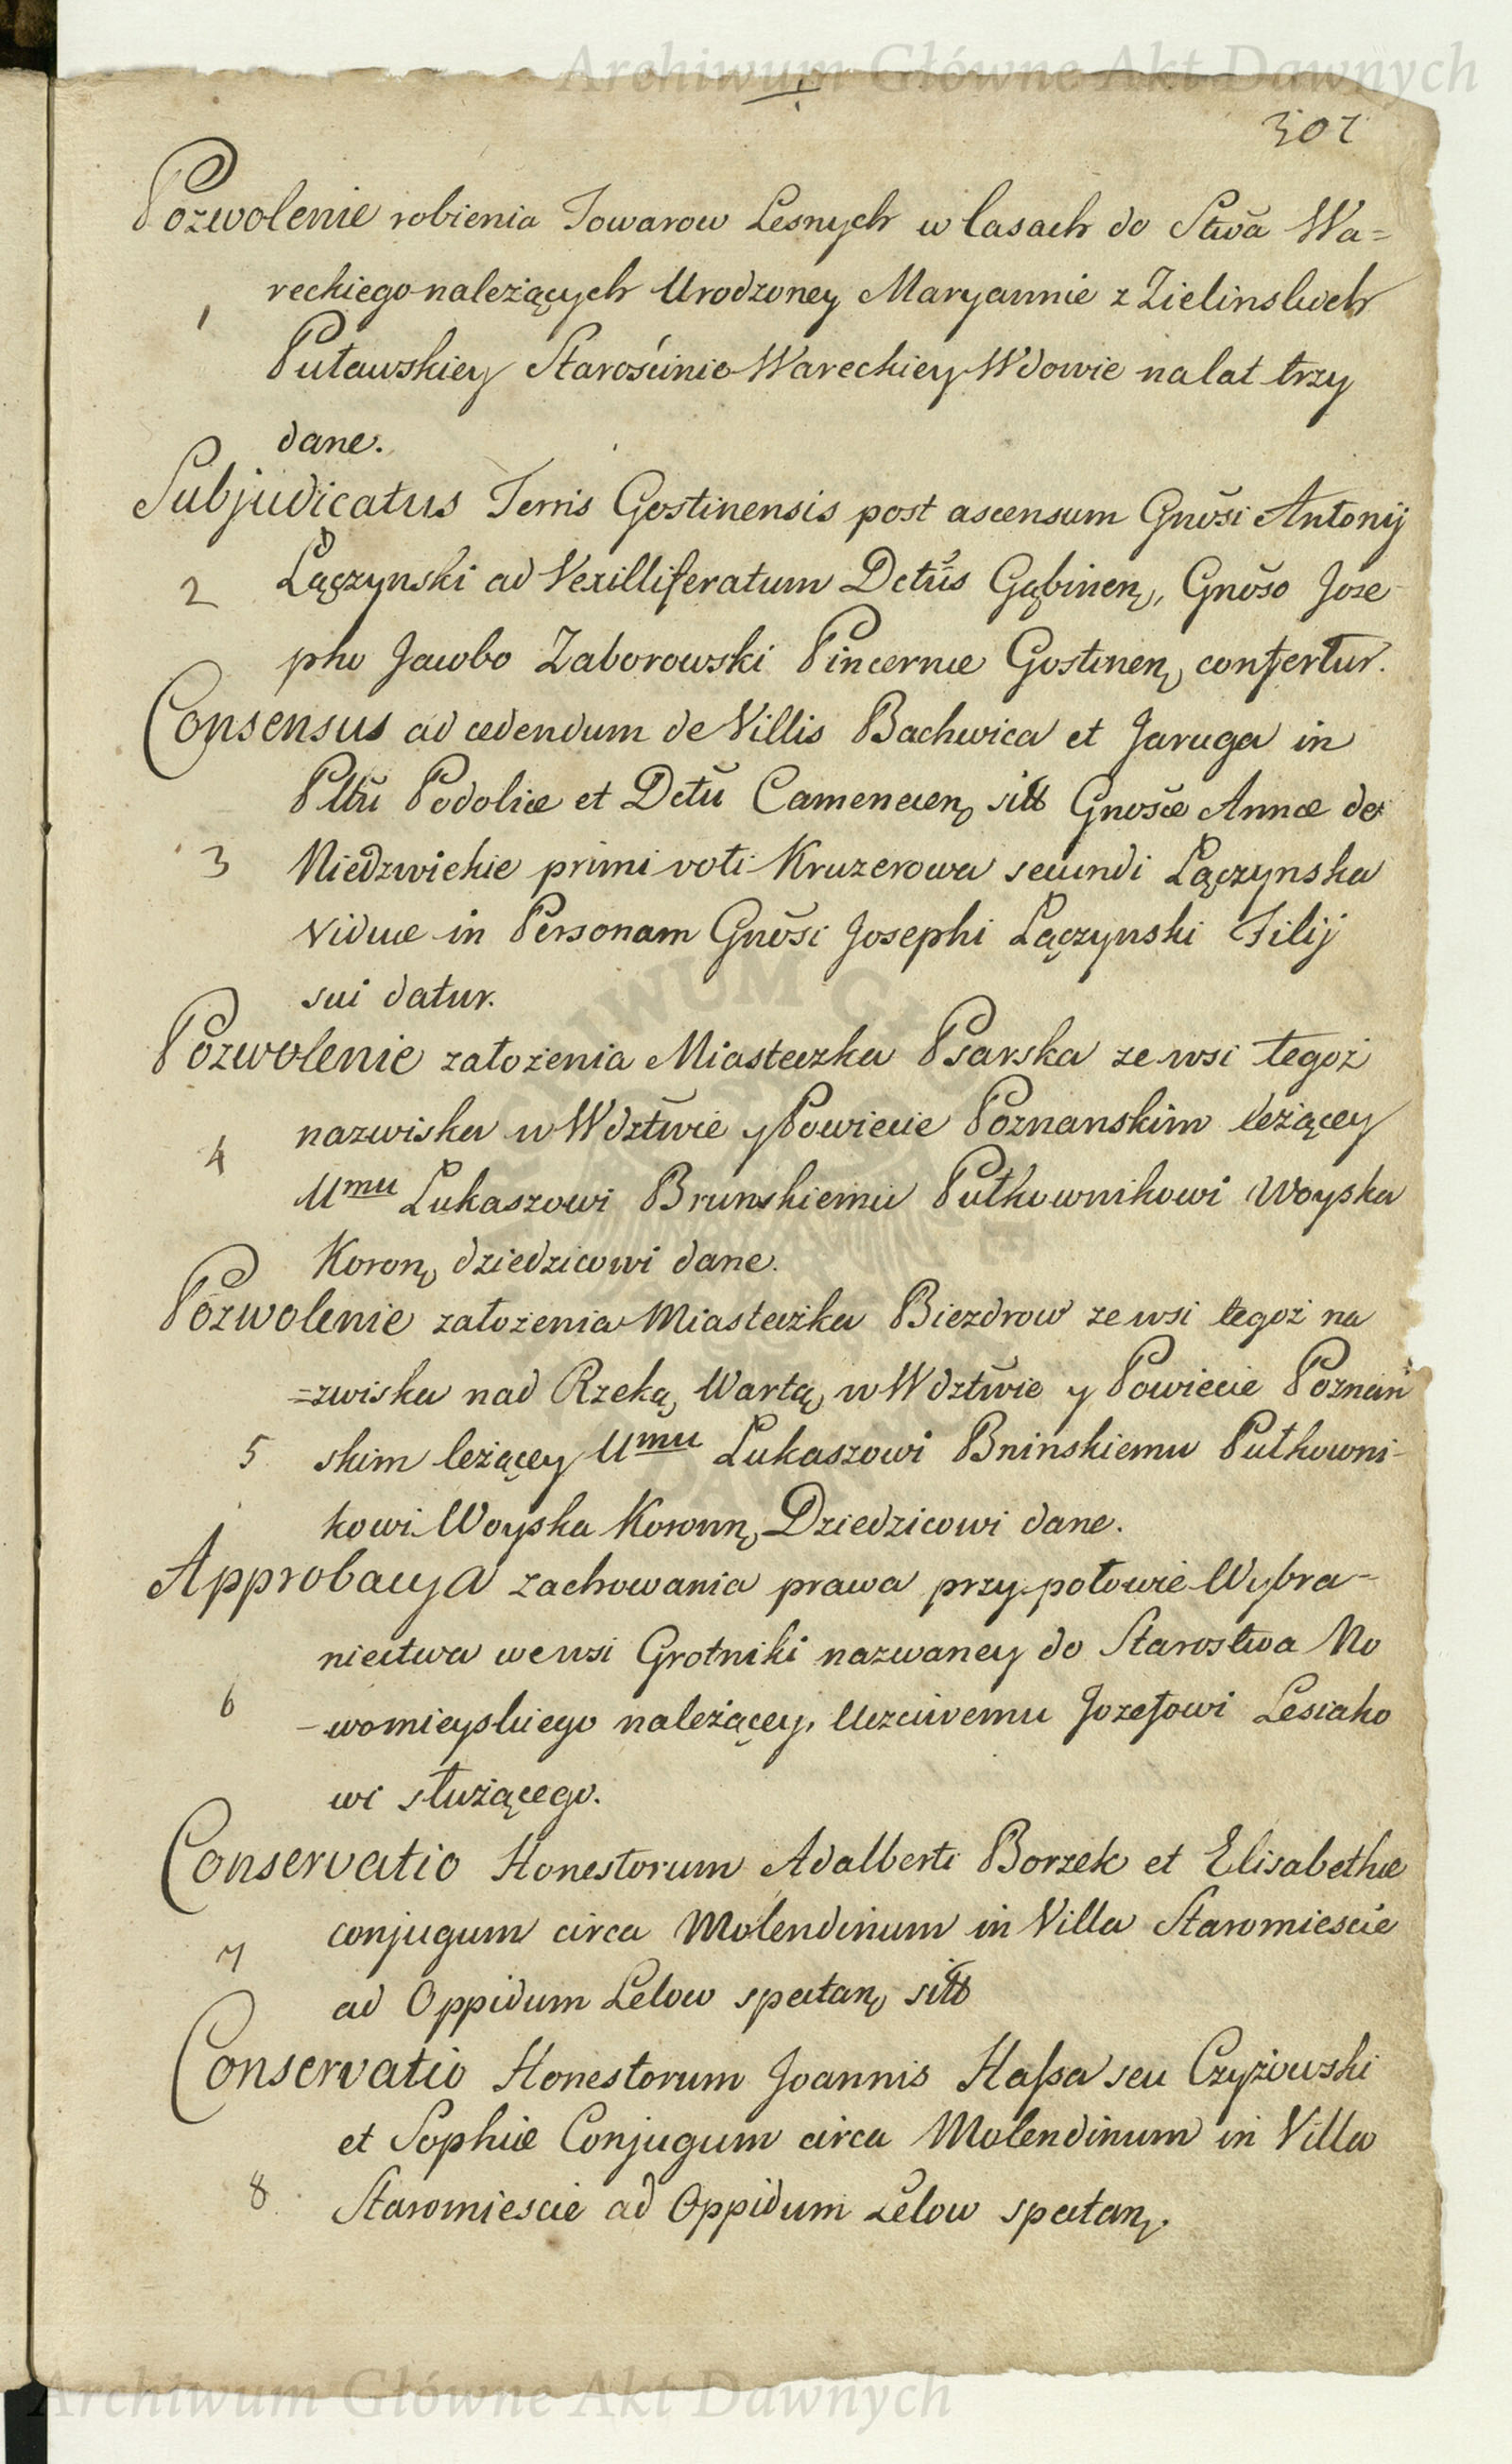 Archiwum Główne Akt Dawnych
302
Pozwolenie robienia Towarow Lesnych w lasach do Stwa Wa=
1 reckiego należących Urodzoney Maryannie z Zielinskich
Puławskiey Starościnie Wareckiey Wdowie na lat trzy
dane.
Subjudicatus Terris Gostinensis post ascensum Gnosi Antonij
2 Łączynski ad Vexilliferatum Dctus Gąbinen, Gnoso Jose
pho Jacobo Zaborowski Pincernæ Gostinen confertur.
Consensus ad cedendum de Villis Bachwica et Jaruga in
Pltu Podoliæ et Dctu Camenecen sitt Gnosæ Annæ de
3 Niedzwickie primi voti Kruzerowa secundi Łączynska
viduæ in Personam Gnosi Josephi Łączynski Filij
sui datur.
Pozwolenie założenia Miasteczka Psarska ze wsi tegoż
nazwiska w Wdztwie y Powiecie Poznanskim leżącey
4 Umu Łukaszowi Brunskiemu Pułkownikowi Woyska
Koron dziedzicowi dane.
Pozwolenie założenia Miasteczka Biezdrow ze wsi tegoż na
=zwiska nad Rzeką Wartą w Wdztwie y Powiecie Poznań
5 skim leżącey Umu Łukaszowi Bninskiemu Pułkowni-
kowi Woyska Koronn Dziedzicowi dane.
Approbacya zachowania prawa przy połowie Wybra-
niectwa we wsi Grotniki nazwaney do Starostwa No
6 -womieyskiego należącey, Uczciwemu Jozefowi Lesiako
wi służącego.
Conservatio Honestorum Adalberti Borzek et Elisabethæ
conjugum circa Molendinum in Villa Staromiescie
7 ad Oppidum Lelow spectan sitt
Conservatio Honestorum Joannis Haſsa seu Czyżowski
et Sophiæ Conjugum circa Molendinum in Villa
8 Staromiescie ad Oppidum Lelow spectan.
Archiwum Główne Akt Dawnych